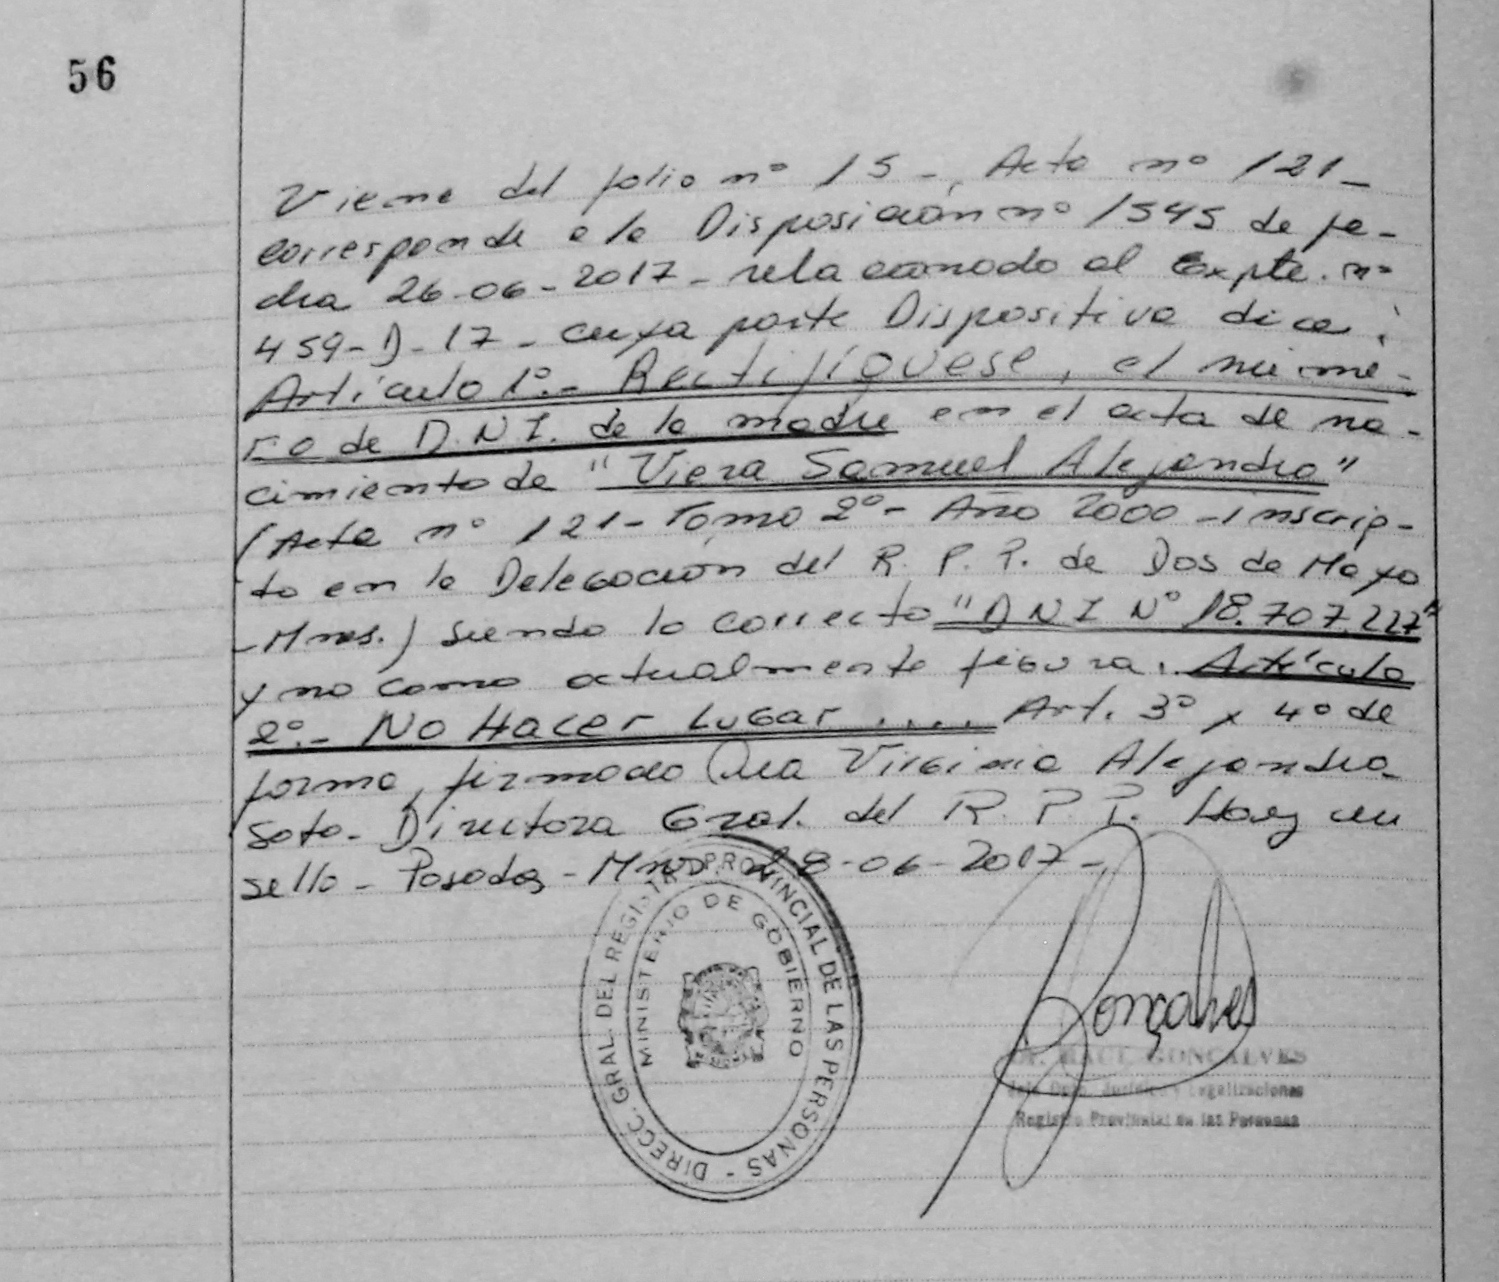 56
Viene del folio nº 15 -, Acta nº 121 -
corresponde a la Disposición nº 1545 de fe-
cha 26-06-2017 - relacionado al Expte. nº
459-D-17 - cuya parte Dispositiva dice:
Artículo 1º.- Rectifíquese, el núme-
ro de D.N.I. de la madre en el acta de na-
cimiento de "Viera Samuel Alejandro"
(Acta nº 121 - Tomo 2º - Año 2000 - inscrip-
to en la Delegación del R. P. P. de Dos de Mayo
- Mnes.) siendo lo correcto "D N I Nº 18.707.227"
y no como actualmente figura. Artículo
2º.- No Hacer Lugar ..... Art. 3º y 4º de
forma, firmado Dra Virginia Alejandra
Soto - Directora Gral. del R. P. P. Hay un
sello - Posadas - Mnes. 28-06-2017 -
DIRECC. GRAL. DEL REGISTRO PROVINCIAL DE LAS PERSONAS -
MINISTERIO DE GOBIERNO
Gonçalves
GONCALVES
Jefe Dpto. Jurídico y Legalizaciones
Registro Provincial de las Personas